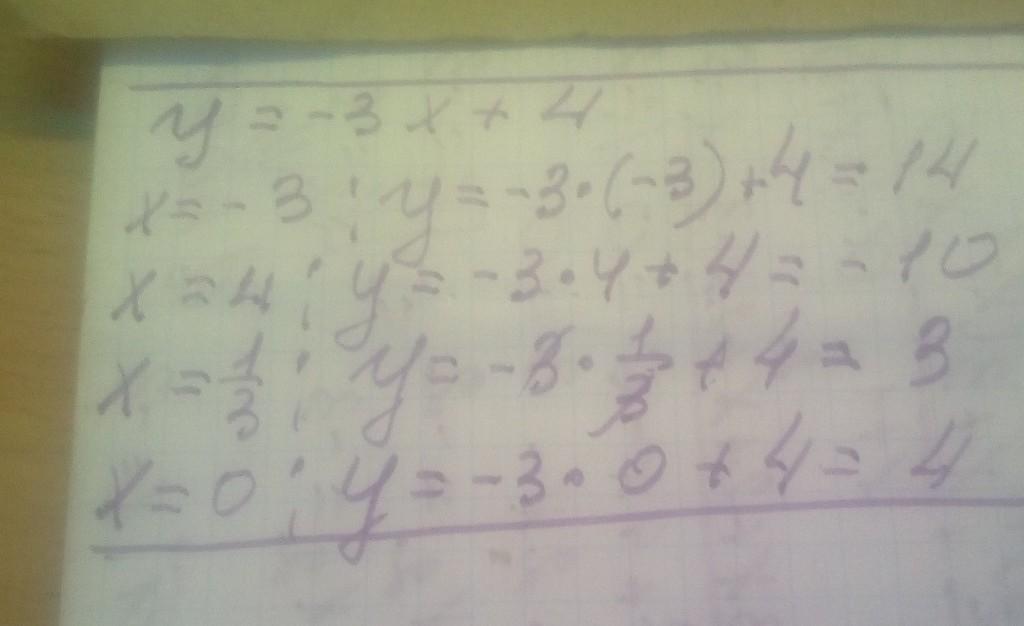 y = -3x + 4
x = -3 ; y = -3·(-3)+4 = 14
x = 4 ; y = -3·4 + 4 = -10
x = 1/3 ; y = -3·1/3 + 4 = 3
x = 0 ; y = -3·0 + 4 = 4